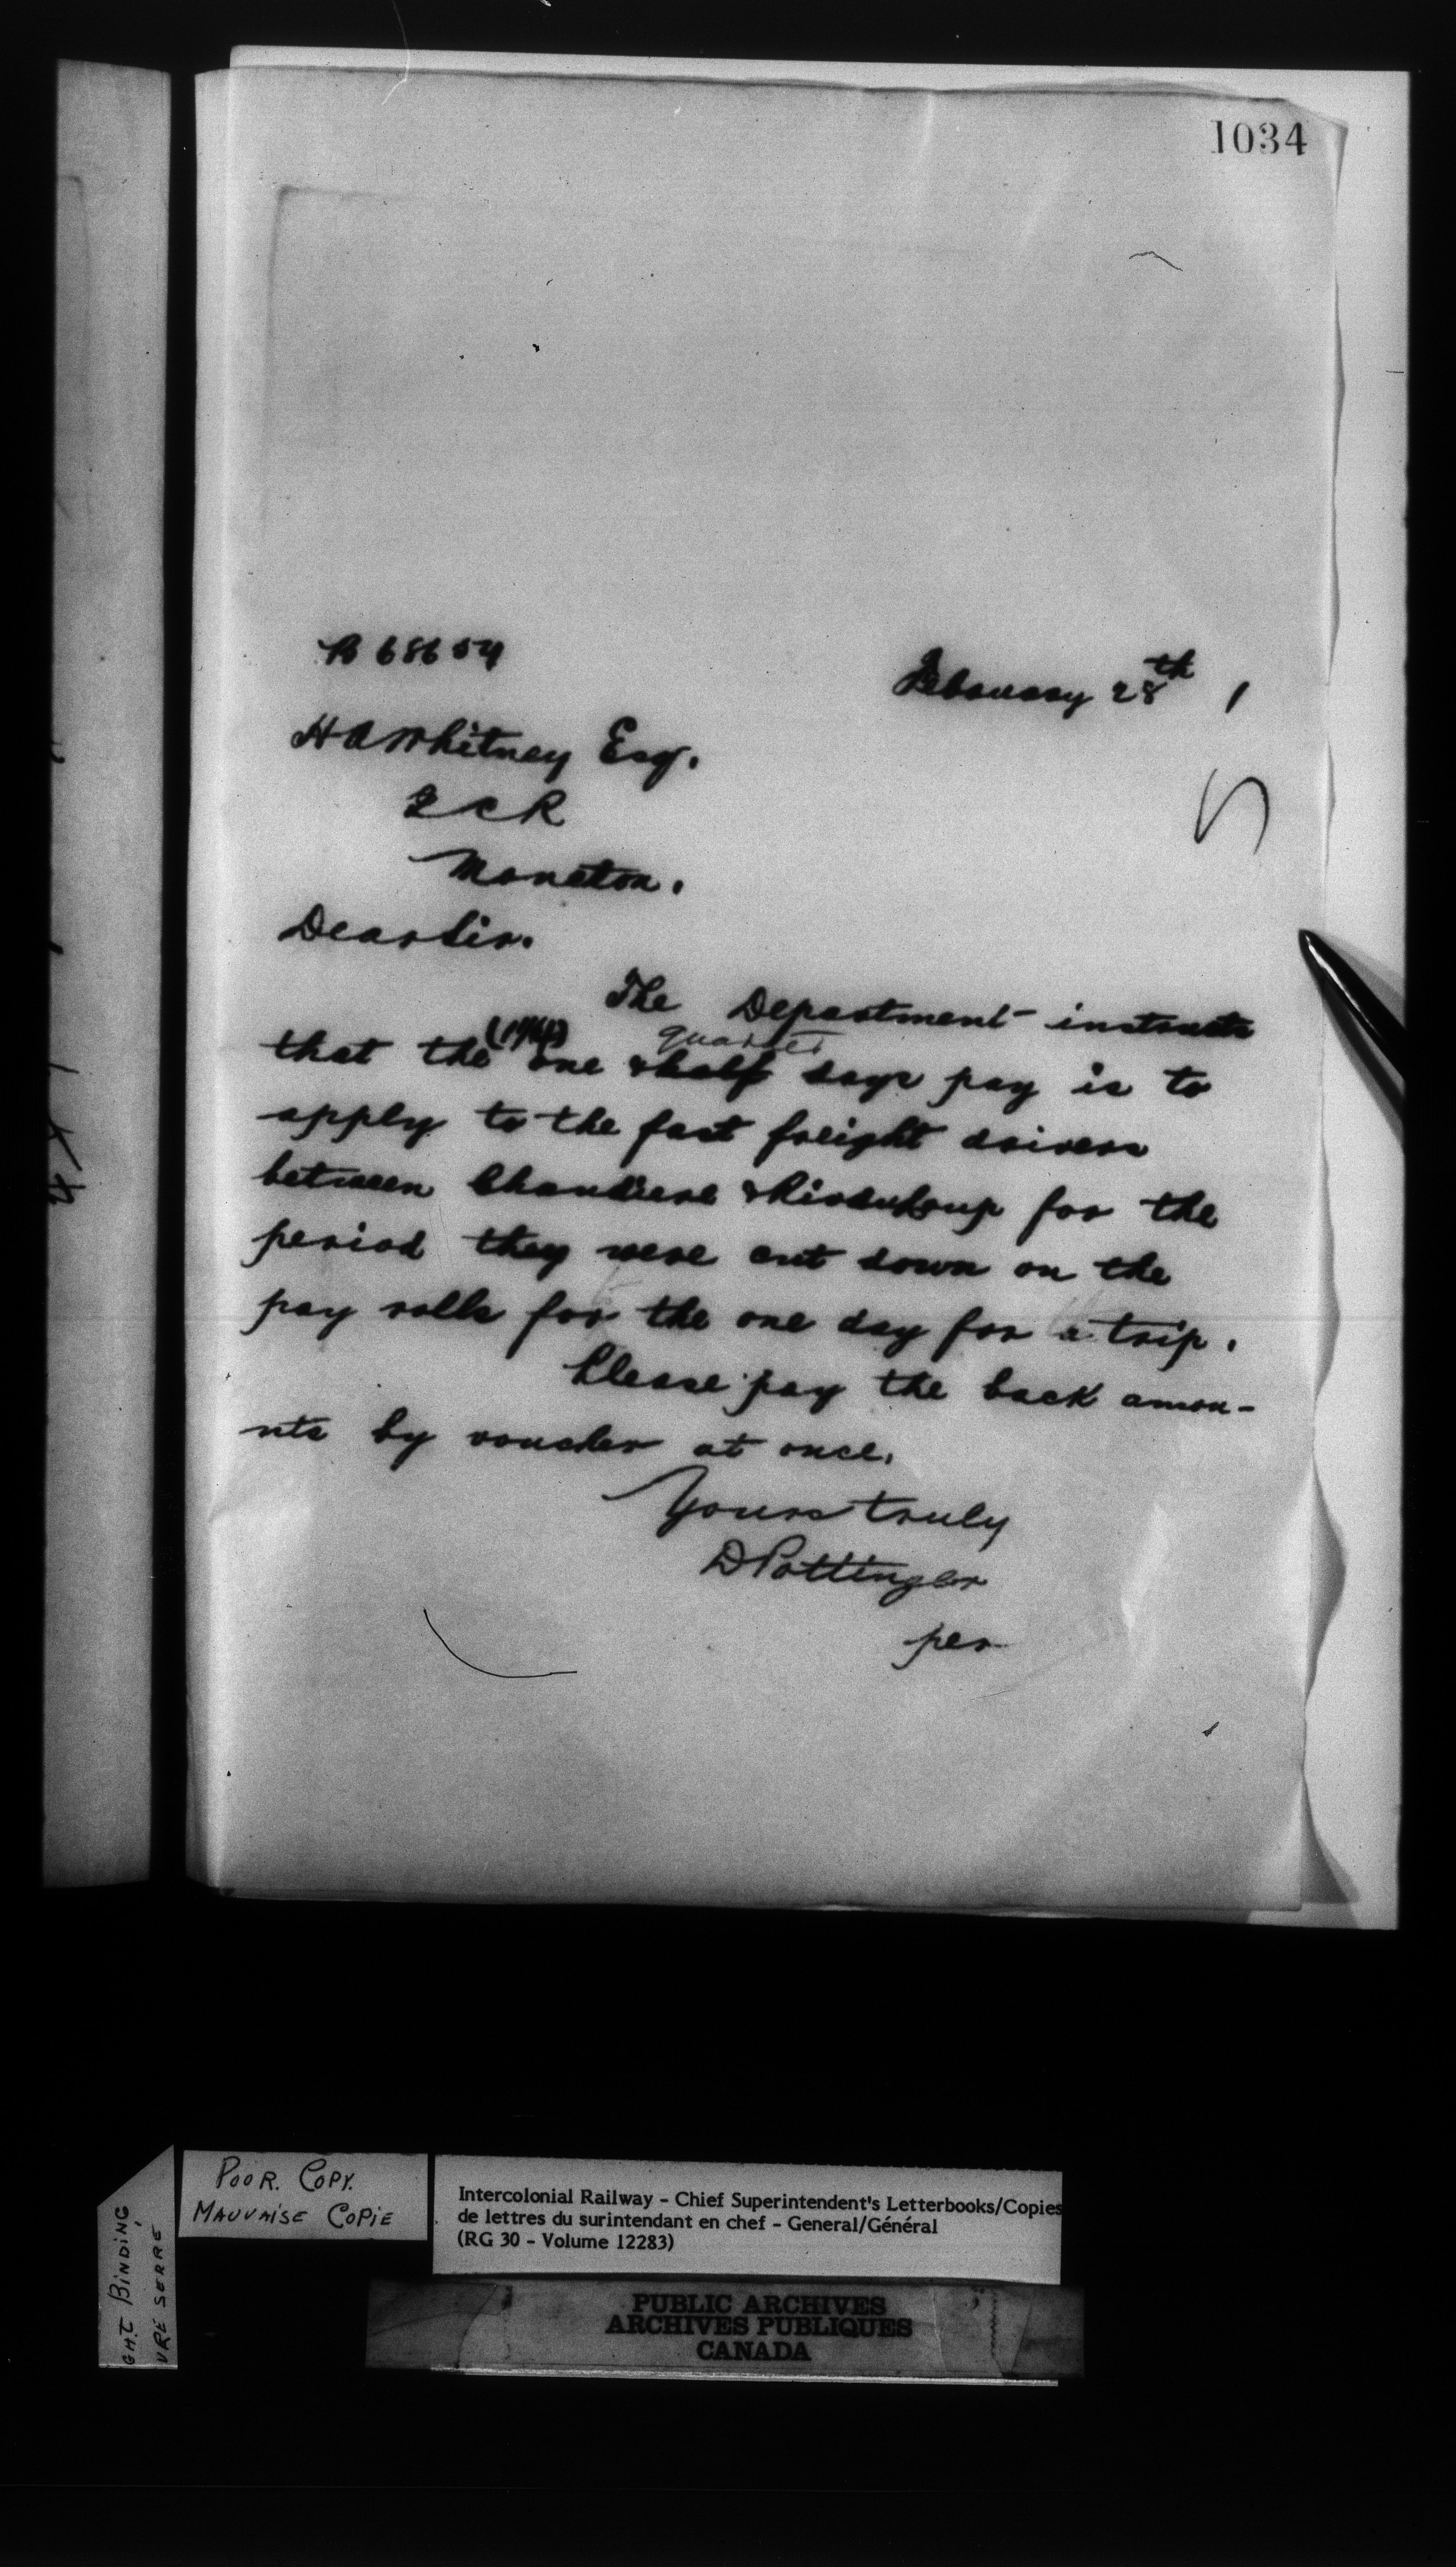 1034
B 68654
February 28th 1
H A Whitney Esq.
I C R
Moncton.
Dear Sir.
The Department instructs
(1¼) quarter
that the one & half days pay is to
apply to the fast freight drivers
between Chaudiere & Riviere du Loup for the
period they were cut down on the
pay rolls for the one day for a trip.
Please pay the back amou-
nts by voucher at once.
Yours truly
D Pottinger
per
POOR. COPY.
MAUVAISE COPIE
GHT BINDING
VRE SERRÉ
Intercolonial Railway - Chief Superintendent's Letterbooks/Copies
de lettres du surintendant en chef - General/Général
(RG 30 - Volume 12283)
PUBLIC ARCHIVES
ARCHIVES PUBLIQUES
CANADA